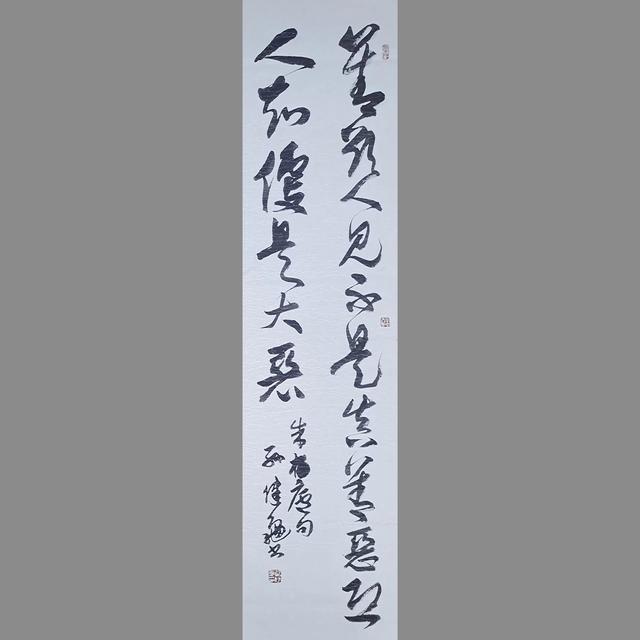 善欲人見不是真善惡恐
人知便是大惡
朱柏廬句
孫健書